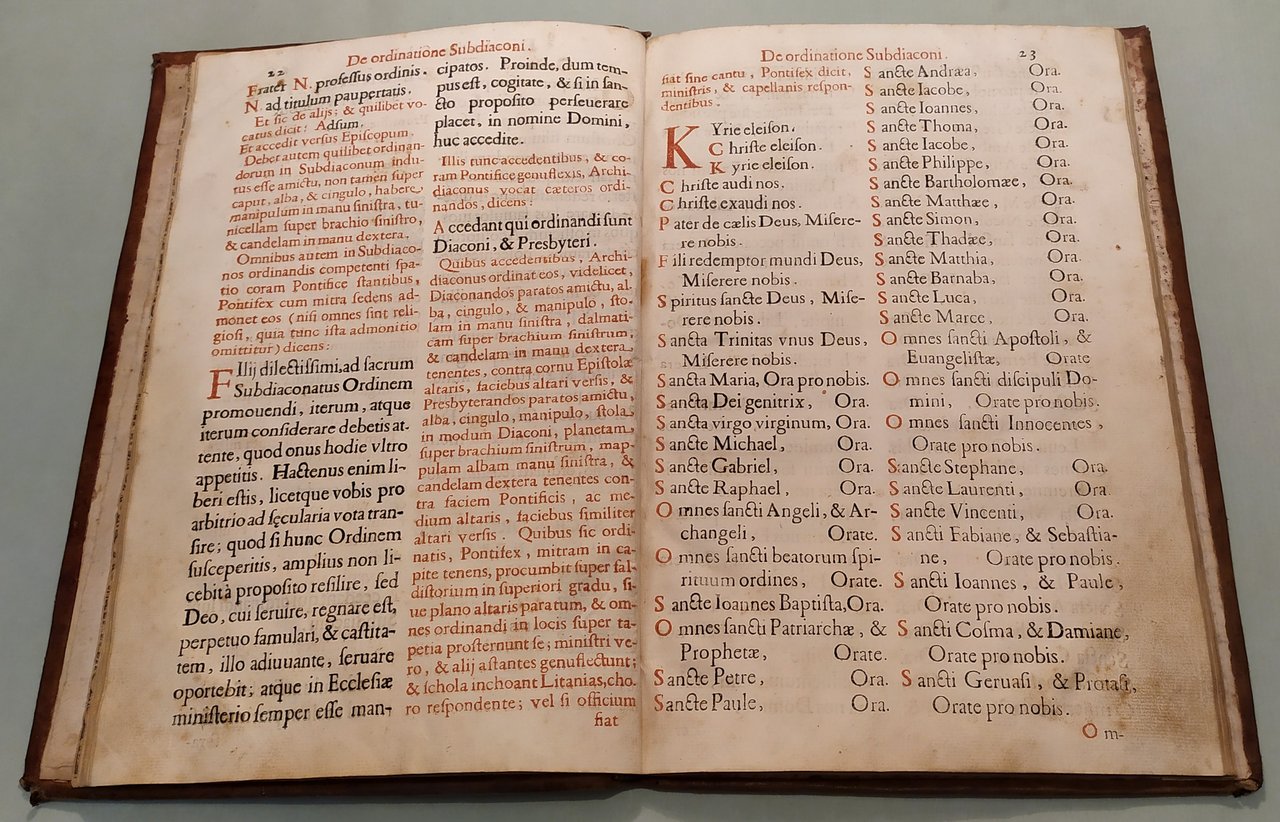 De ordinatione Subdiaconi.
22
Frater N. professus ordinis.
N. ad titulum paupertatis.
Et sic de alijs; & quilibet vo-
catus dicit: Adsum.
Et accedit versus Episcopum.
Debet autem quilibet ordinan-
dorum in Subdiaconum indu-
tus esse amictu, non tamen super
caput, alba, & cingulo, habere
manipulum in manu sinistra, tu-
nicellam super brachio sinistro,
& candelam in manu dextera.
Omnibus autem in Subdiaco-
nos ordinandis competenti spa-
tio coram Pontifice stantibus,
Pontifex cum mitra sedens ad-
monet eos (nisi omnes sint reli-
giosi, quia tunc ista admonitio
omittitur) dicens:
FIlij dilectissimi, ad sacrum
Subdiaconatus Ordinem
promouendi, iterum, atque
iterum considerare debetis at-
tente, quod onus hodie vltro
appetitis. Hactenus enim li-
beri estis, licetque vobis pro
arbitrio ad sęcularia vota tran-
sire; quod si hunc Ordinem
susceperitis, amplius non li-
cebit à proposito resilire, sed
Deo, cui seruire, regnare est,
perpetuo famulari, & castita-
tem, illo adiuuante, seruare
oportebit; atque in Ecclesiæ
ministerio semper esse man-
cipatos. Proinde, dum tem-
pus est, cogitate, & si in san-
cto proposito perseuerare
placet, in nomine Domini,
huc accedite.
Illis tunc accedentibus, & co-
ram Pontifice genuflexis, Archi-
diaconus vocat cæteros ordi-
nandos, dicens:
Accedant qui ordinandi sunt
Diaconi, & Presbyteri.
Quibus accedentibus, Archi-
diaconus ordinat eos, videlicet,
Diaconandos paratos amictu, al-
ba, cingulo, & manipulo, sto-
lam in manu sinistra, dalmati-
cam super brachium sinistrum,
& candelam in manu dextera
tenentes, contra cornu Epistolæ
altaris, faciebus altari versis, &
Presbyterandos paratos amictu,
alba, cingulo, manipulo, stola
in modum Diaconi, planetam
super brachium sinistrum, map-
pulam albam manu sinistra, &
candelam dextera tenentes con-
tra faciem Pontificis, ac me-
dium altaris, faciebus similiter
altari versis. Quibus sic ordi-
natis, Pontifex, mitram in ca-
pite tenens, procumbit super fal-
distorium in superiori gradu, si-
ue plano altaris paratum, & om-
nes ordinandi in locis super ta-
petia prosternunt se; ministri ve-
ro, & alij astantes genuflectunt;
& schola inchoant Litanias, cho-
ro respondente; vel si officium
fiat
De ordinatione Subdiaconi.
23
fiat sine cantu, Pontifex dicit,
ministris, & capellanis respon-
dentibus.
KYrie eleison.
Christe eleison.
Kyrie eleison.
Christe audi nos.
Christe exaudi nos.
Pater de cælis Deus, Misere-
re nobis.
Fili redemptor mundi Deus,
Miserere nobis.
Spiritus sancte Deus, Mise-
rere nobis.
Sancta Trinitas vnus Deus,
Miserere nobis.
Sancta Maria, Ora pro nobis.
Sancta Dei genitrix, Ora.
Sancta virgo virginum, Ora.
Sancte Michael, Ora.
Sancte Gabriel, Ora.
Sancte Raphael, Ora.
Omnes sancti Angeli, & Ar-
changeli, Orate.
Omnes sancti beatorum spi-
rituum ordines, Orate.
Sancte Ioannes Baptista, Ora.
Omnes sancti Patriarchæ, &
Prophetæ, Orate.
Sancte Petre, Ora.
Sancte Paule, Ora.
Sancte Andræa, Ora.
Sancte Iacobe, Ora.
Sancte Ioannes, Ora.
Sancte Thoma, Ora.
Sancte Iacobe, Ora.
Sancte Philippe, Ora.
Sancte Bartholomæe, Ora.
Sancte Matthæe, Ora.
Sancte Simon, Ora.
Sancte Thadæe, Ora.
Sancte Matthia, Ora.
Sancte Barnaba, Ora.
Sancte Luca, Ora.
Sancte Marce, Ora.
Omnes sancti Apostoli, &
Euangelistæ, Orate
Omnes sancti discipuli Do-
mini, Orate pro nobis.
Omnes sancti Innocentes,
Orate pro nobis.
Sancte Stephane, Ora.
Sancte Laurenti, Ora.
Sancte Vincenti, Ora.
Sancti Fabiane, & Sebastia-
ne, Orate pro nobis.
Sancti Ioannes, & Paule,
Orate pro nobis.
Sancti Cosma, & Damiane,
Orate pro nobis.
Sancti Geruasi, & Protasi,
Orate pro nobis.
Om-